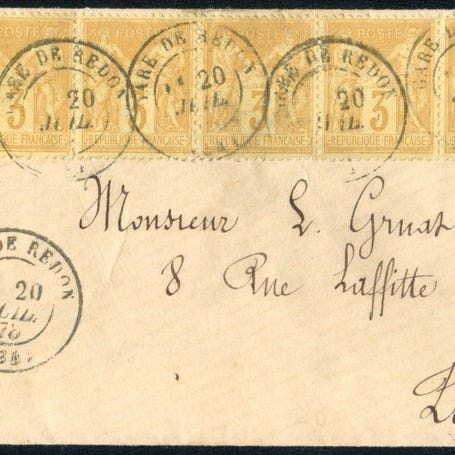 POSTE
GARE DE REDON
20
JUIL.
3
RÉPUBLIQUE FRANÇAISE
GARE DE REDON
20
JUIL.
3
GARE DE REDON
20
JUIL.
3
RÉPUBLIQUE FRANÇAISE
GARE DE
Monsieur L. Gruat
8 Rue Laffitte
DE REDON
20
JUIL.
78